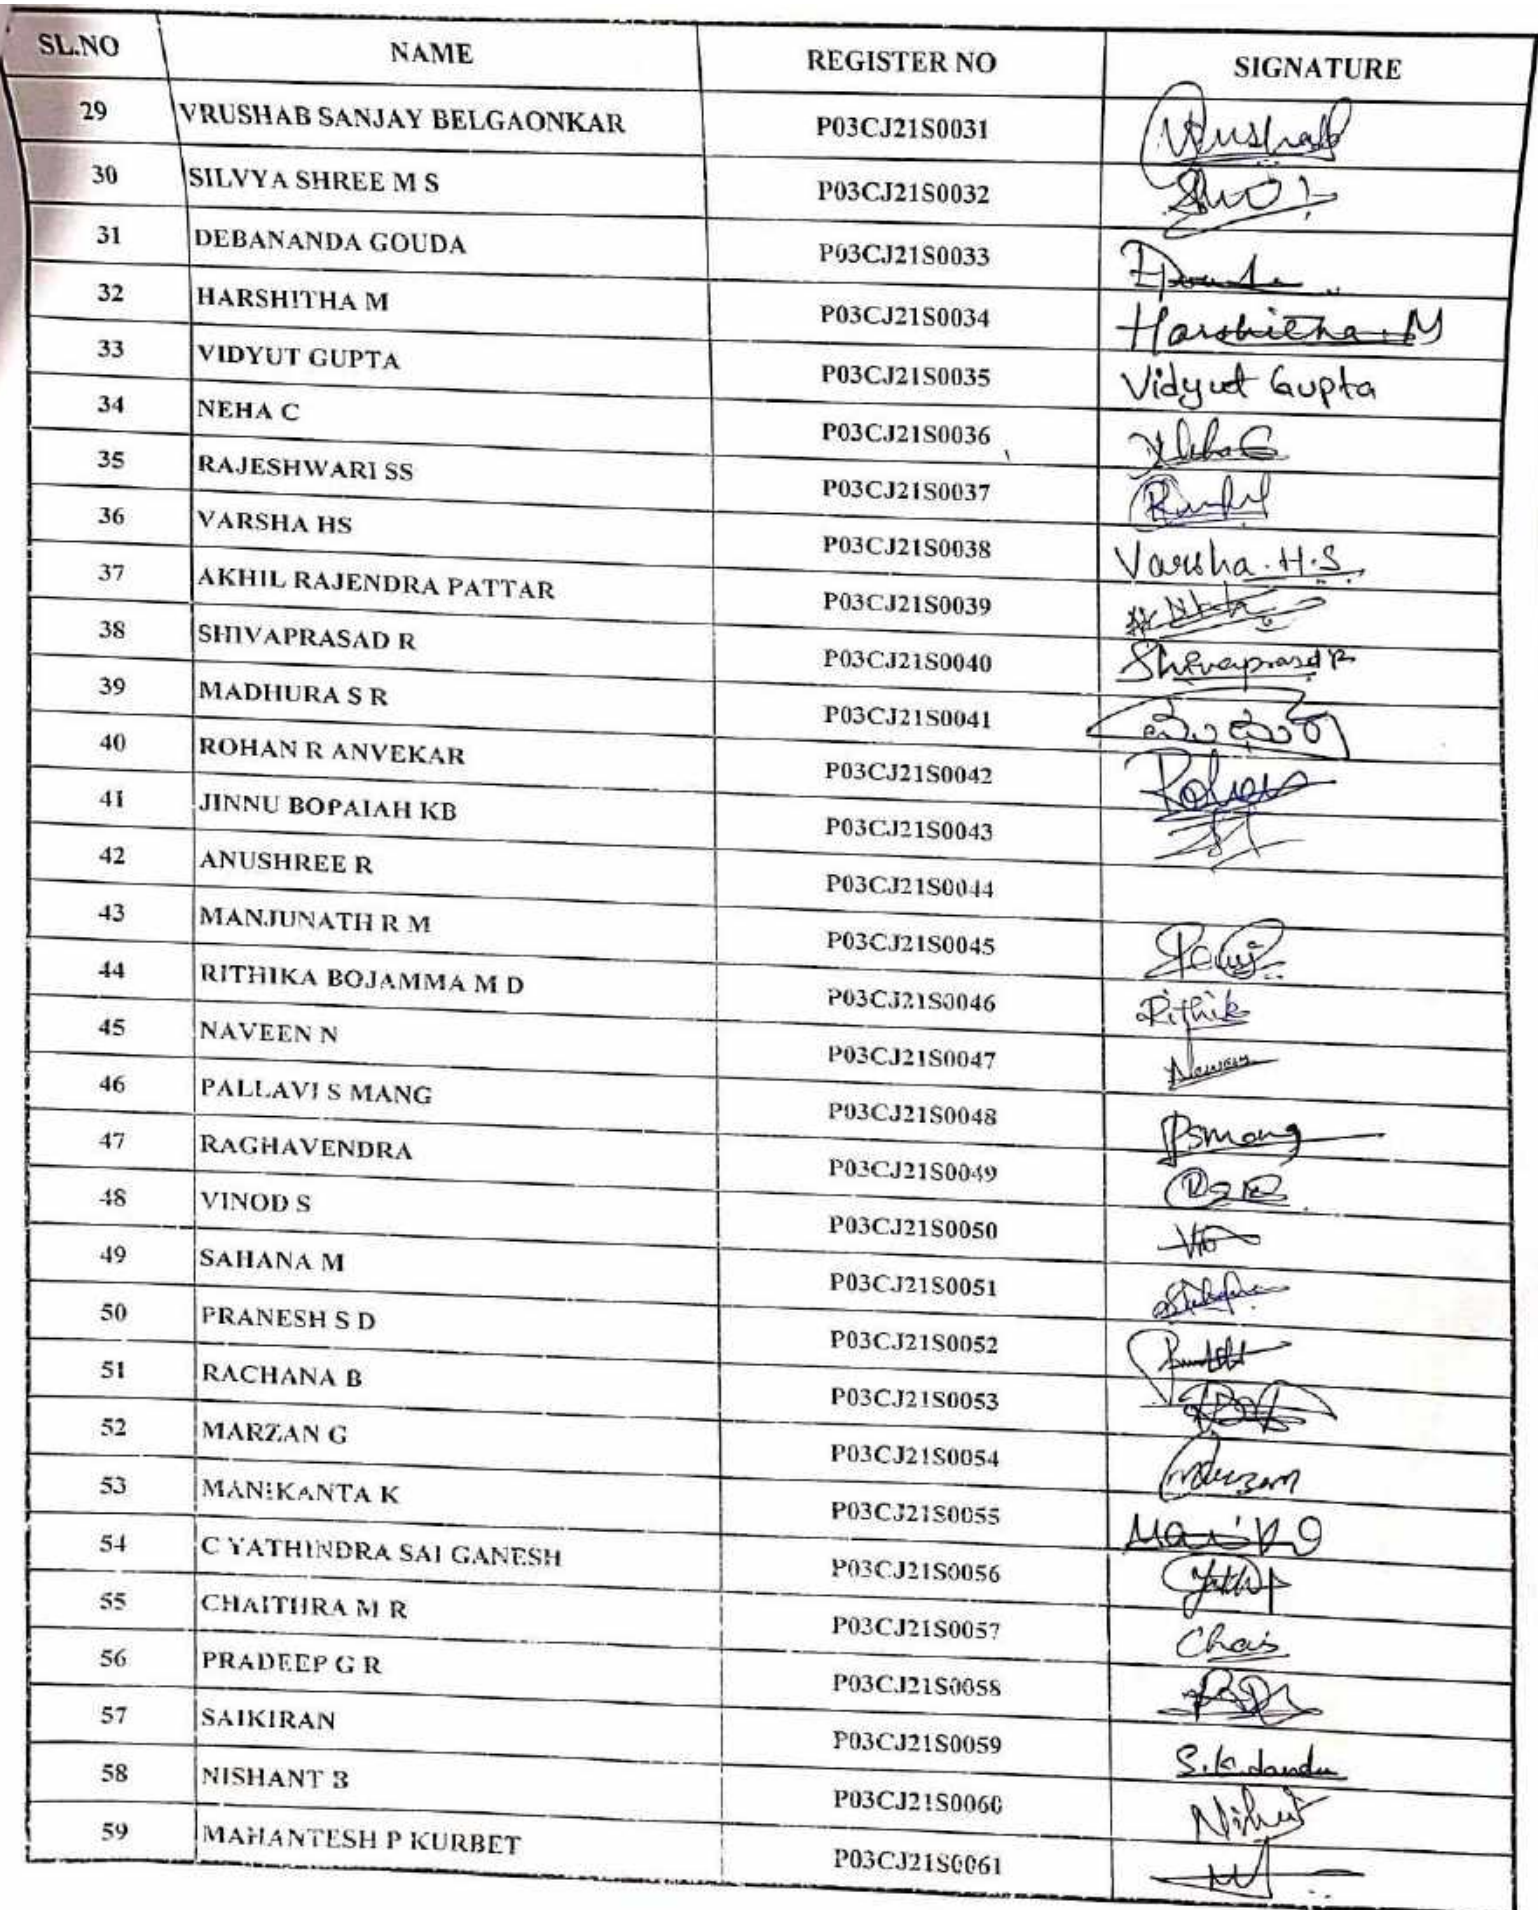 SL.NO NAME REGISTER NO SIGNATURE
29 VRUSHAB SANJAY BELGAONKAR P03CJ21S0031 Vrushab
30 SILVYA SHREE M S P03CJ21S0032
31 DEBANANDA GOUDA P03CJ21S0033
32 HARSHITHA M P03CJ21S0034 Harshitha.M
33 VIDYUT GUPTA P03CJ21S0035 Vidyut Gupta
34 NEHA C P03CJ21S0036 Neha C
35 RAJESHWARI SS P03CJ21S0037
36 VARSHA HS P03CJ21S0038 Varsha.H.S
37 AKHIL RAJENDRA PATTAR P03CJ21S0039
38 SHIVAPRASAD R P03CJ21S0040 Shivaprasad R
39 MADHURA S R P03CJ21S0041
40 ROHAN R ANVEKAR P03CJ21S0042 Rohan
41 JINNU BOPAIAH KB P03CJ21S0043
42 ANUSHREE R P03CJ21S0044
43 MANJUNATH R M P03CJ21S0045
44 RITHIKA BOJAMMA M D P03CJ21S0046 Rithik
45 NAVEEN N P03CJ21S0047 Naveen
46 PALLAVI S MANG P03CJ21S0048 Psmang
47 RAGHAVENDRA P03CJ21S0049
48 VINOD S P03CJ21S0050
49 SAHANA M P03CJ21S0051
50 PRANESH S D P03CJ21S0052
51 RACHANA B P03CJ21S0053
52 MARZAN G P03CJ21S0054 Marzan
53 MANIKANTA K P03CJ21S0055
54 C YATHINDRA SAI GANESH P03CJ21S0056
55 CHAITHRA M R P03CJ21S0057 Chai
56 PRADEEP G R P03CJ21S0058
57 SAIKIRAN P03CJ21S0059 S.K.dandu
58 NISHANT B P03CJ21S0060
59 MAHANTESH P KURBET P03CJ21S0061